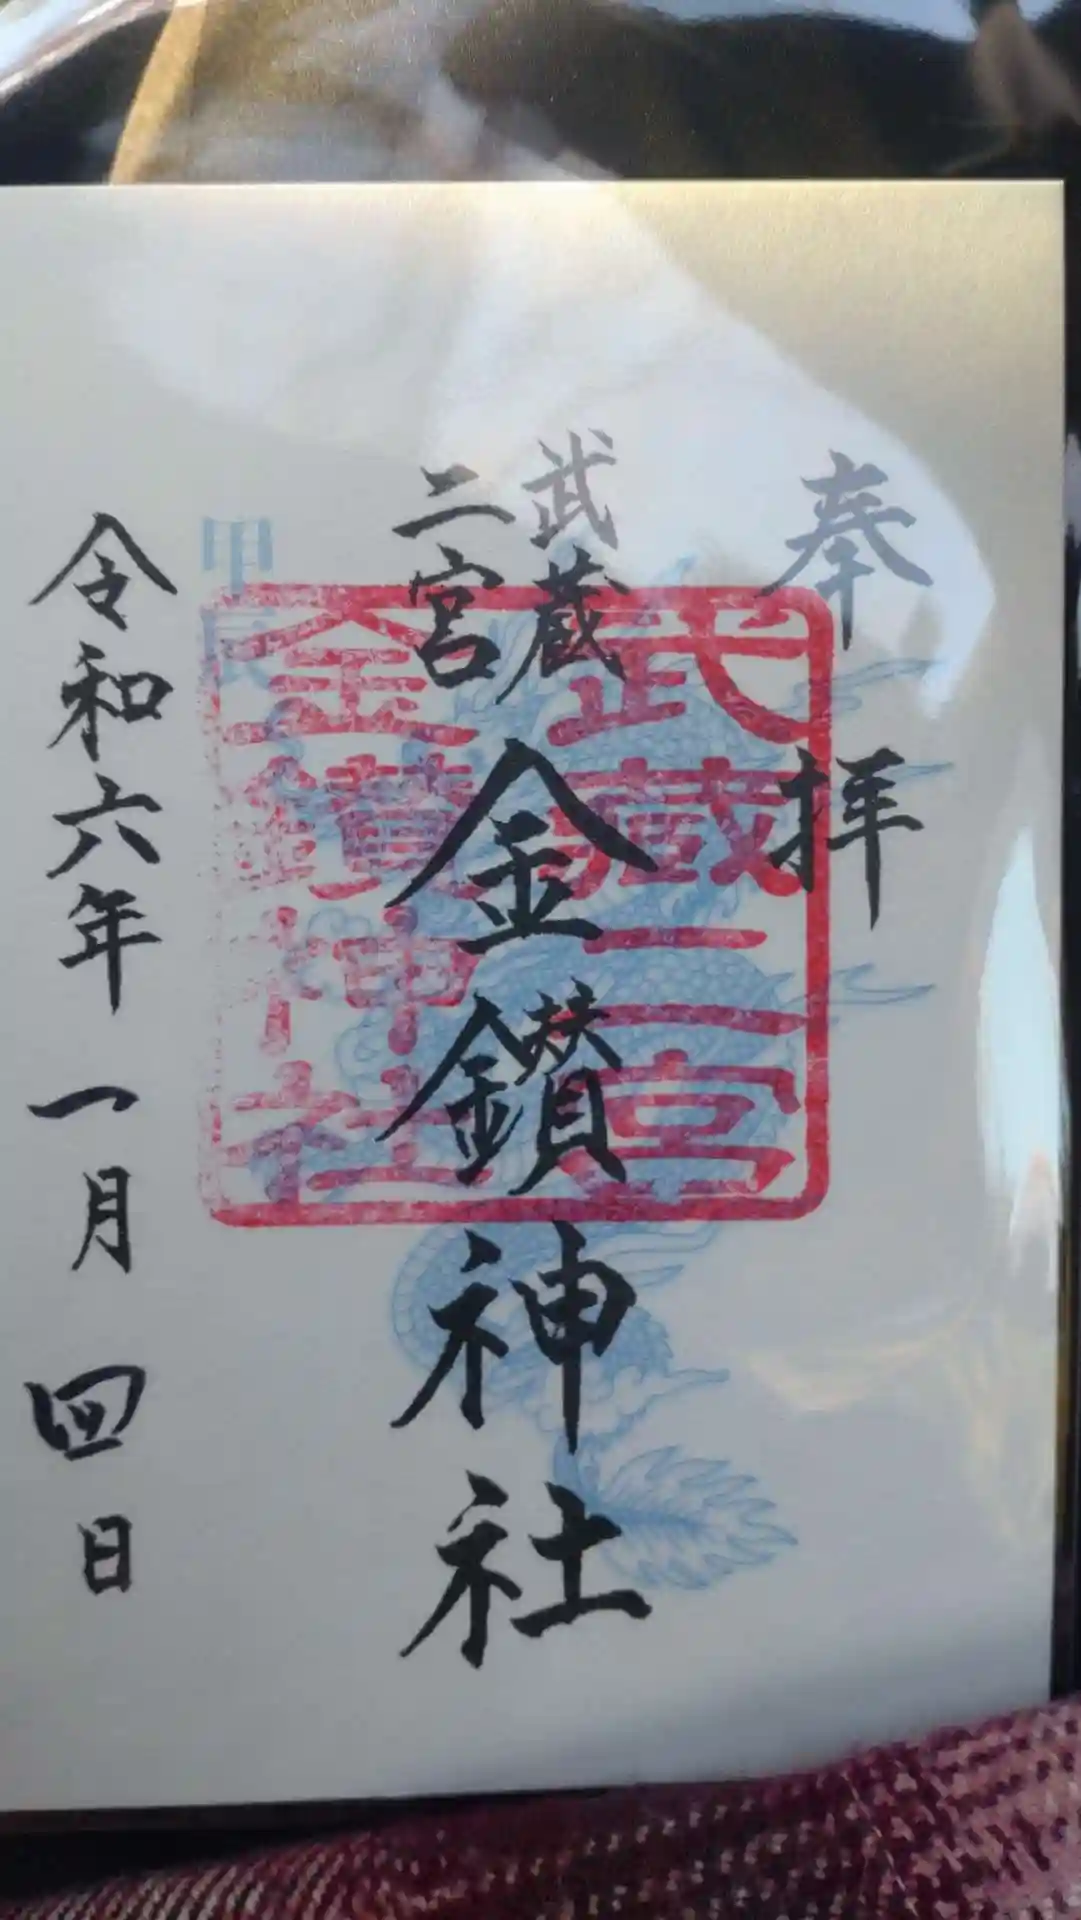 奉拝
武蔵
二宮
金鑚神社
武蔵二宮
金鑚神社
甲辰
令和六年一月四日